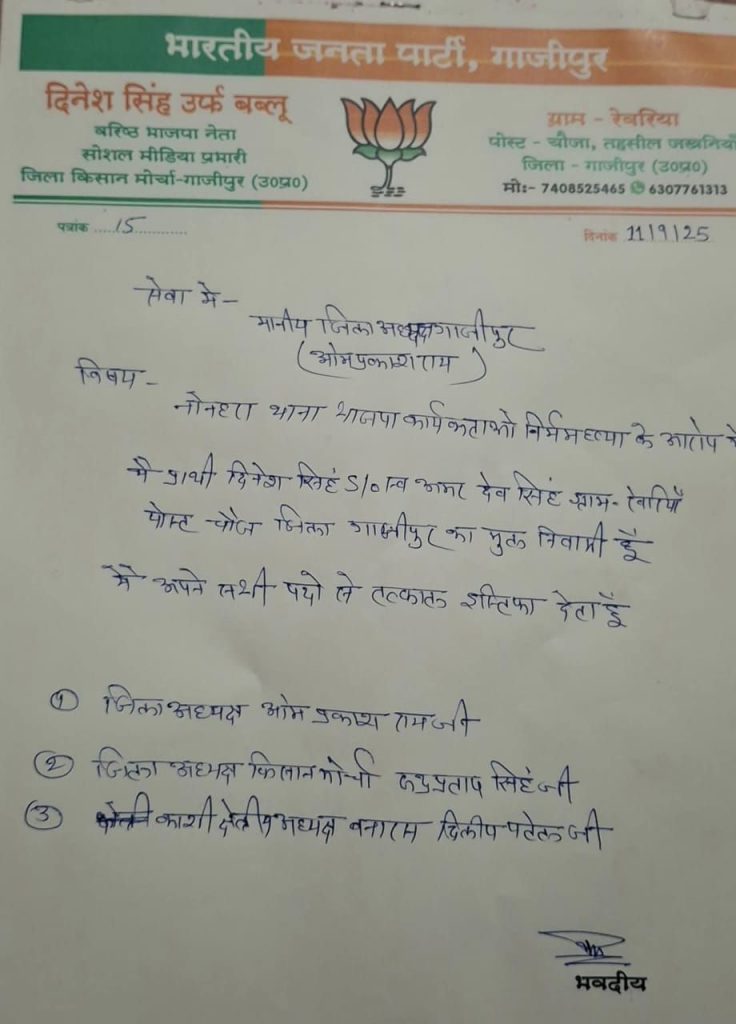 भारतीय जनता पार्टी, गाजीपुर
दिनेश सिंह उर्फ बब्लू
बरिष्ठ भाजपा नेता
सोशल मीडिया प्रभारी
जिला किसान मोर्चा-गाजीपुर (उ०प्र०)
ग्राम - रेवरिया
पोस्ट - चौजा, तहसील जखनियाँ
जिला - गाजीपुर (उ०प्र०)
मो:- 7408525465 6307761313
पत्रांक ....15...........
दिनांक 11/9/25
सेवा मे -
मानीय जिला अध्यक्ष गाजीपुर
(ओमप्रकाश राय)
विषय -
नोनहरा थाना भाजपा कार्यकताओ निर्मम हत्या के आरोप मे
मै प्राथी दिनेश सिहं S/o स्व अमर देव सिहं ग्राम - रेवरियाँ
पोस्ट चौजा जिला गाजीपुर का मुल निवासी हूँ
मै अपने सभी पदो से तत्काल इस्तिफा देता हूँ
① जिला अध्यक्ष ओम प्रकाश राय जी
② जिला अध्यक्ष किसान मोर्चा रुद्रप्रताप सिहं जी
③ काशी क्षेत्रीय अध्यक्ष बनारस दिलीप पटेल जी
भवदीय